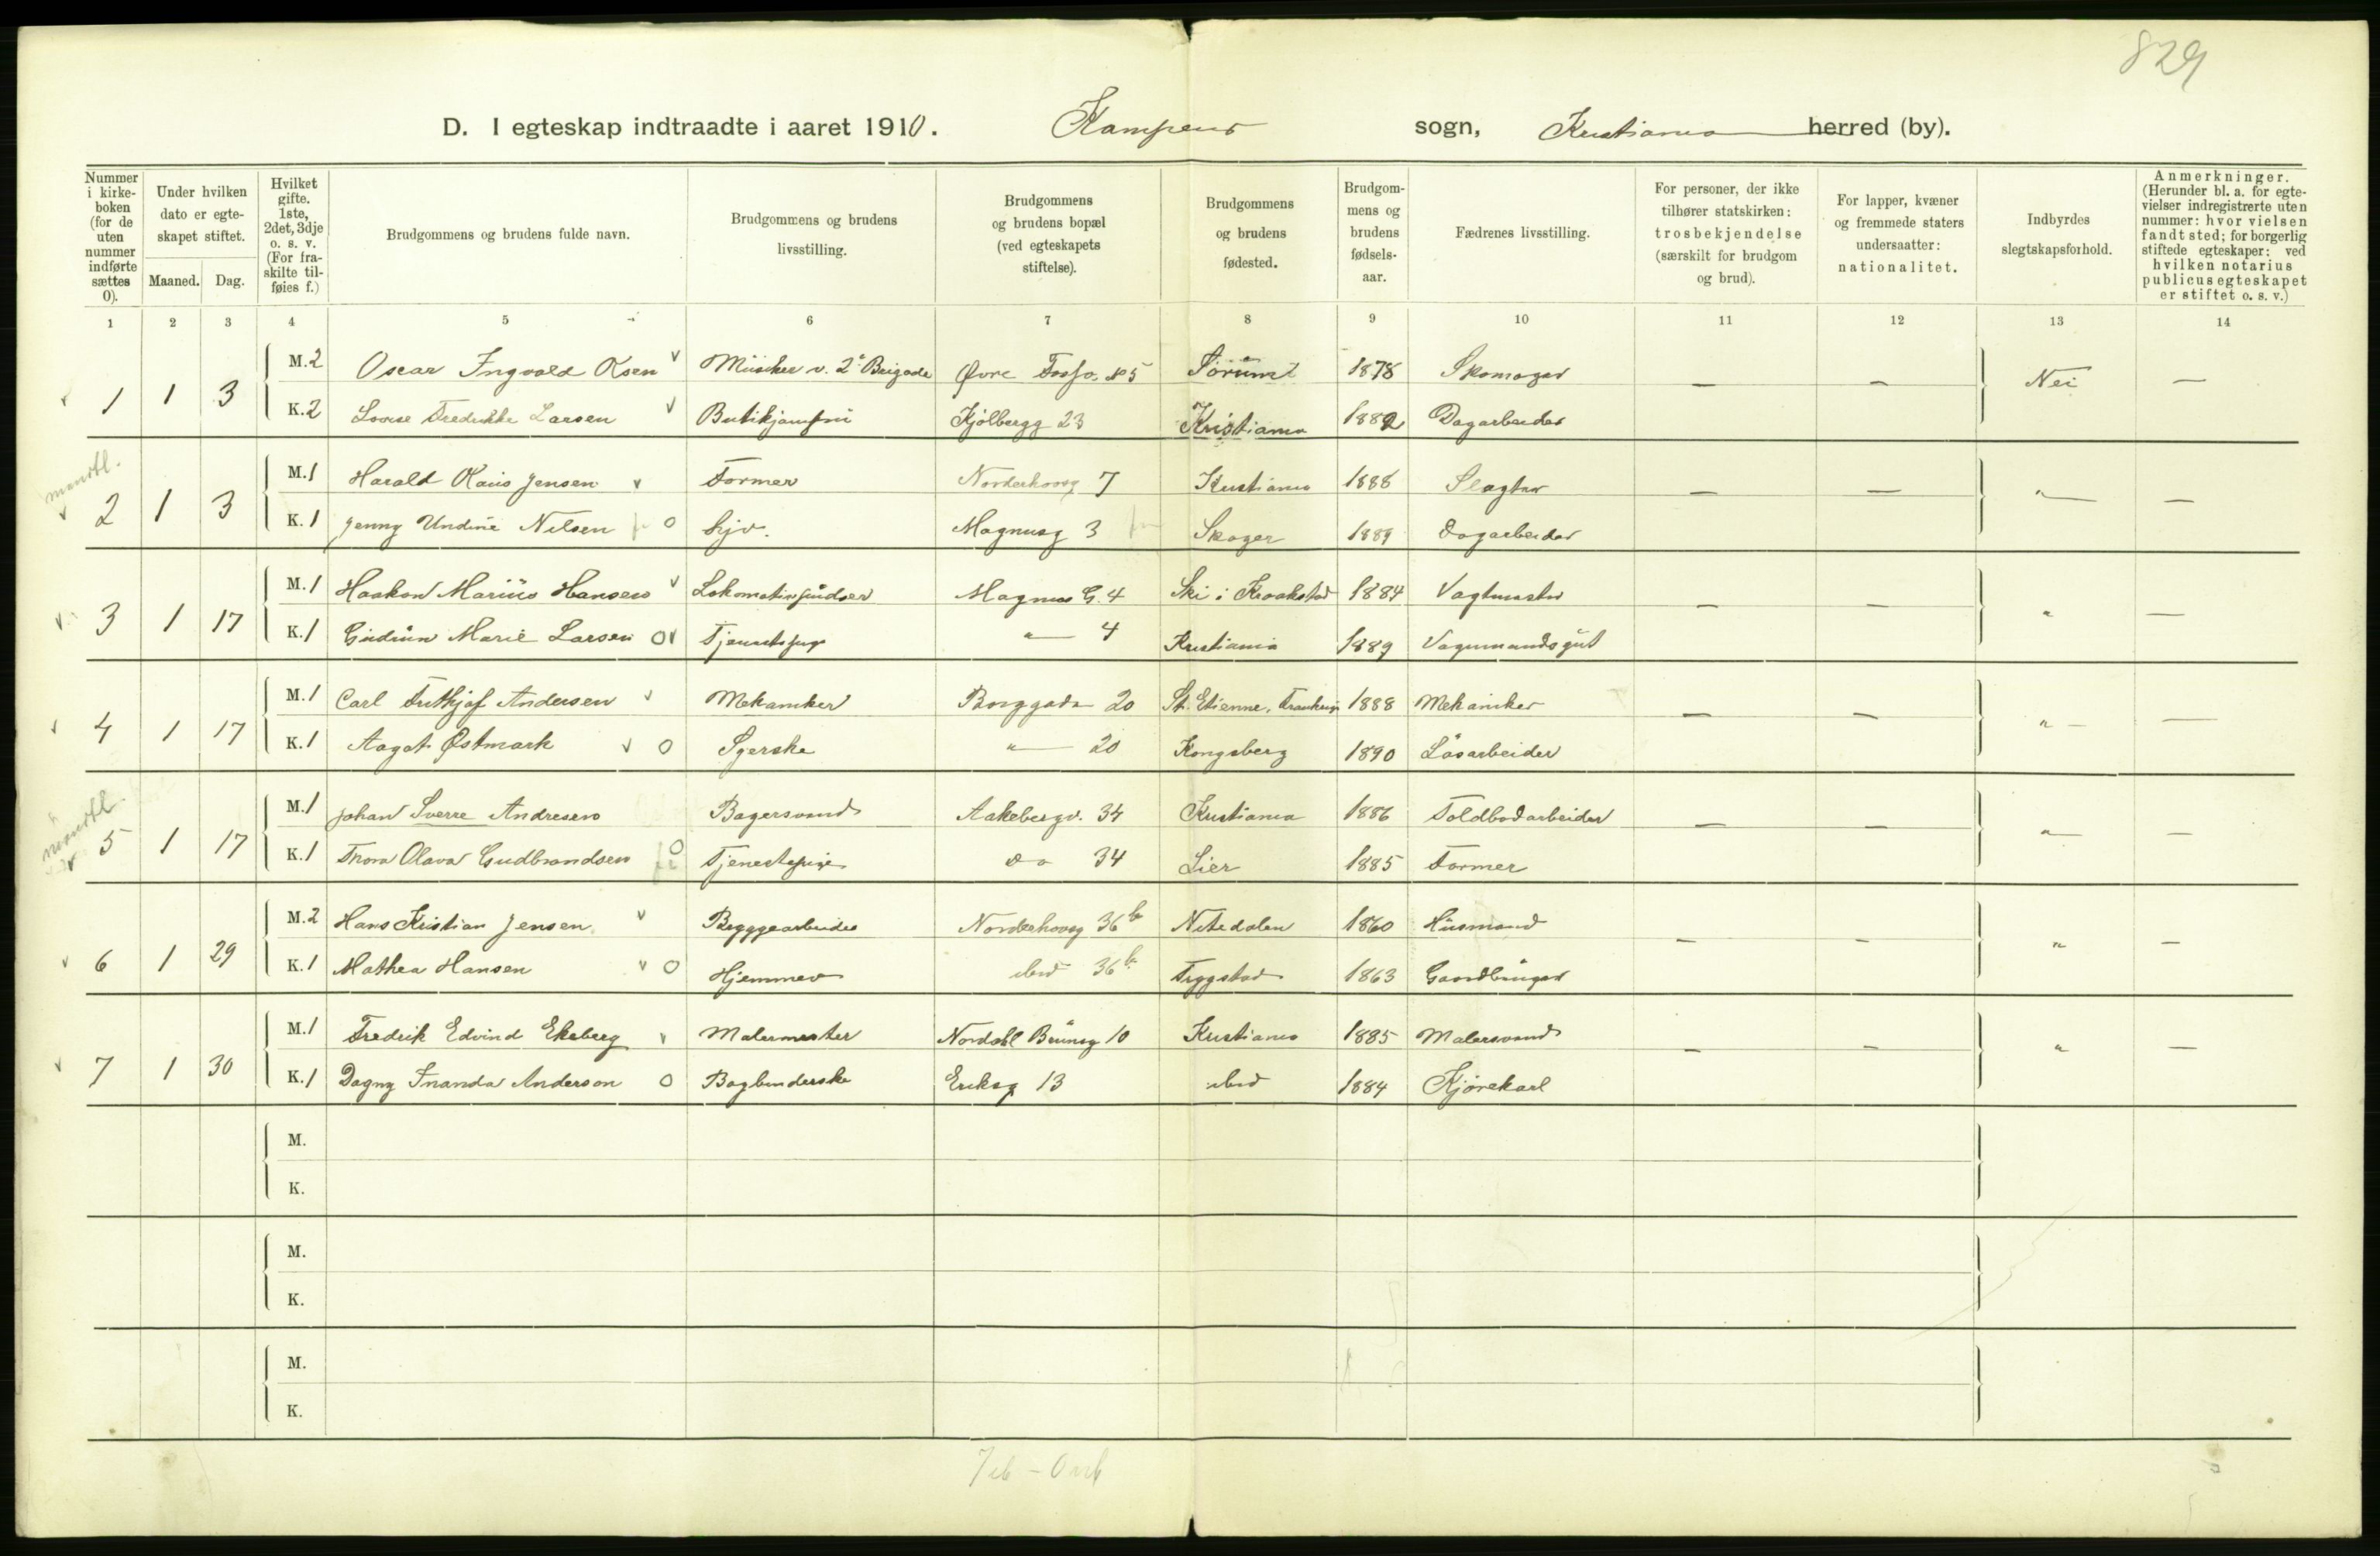 829
D. I egteskap indtraadte i aaret 1910. Kampens sogn, Kristiania herred (by).
Nummer i kirke-boken (for de uten nummer indførte sættes 0).
Under hvilken dato er egte-skapet stiftet.
Maaned. Dag.
Hvilket gifte. 1ste, 2det, 3dje o. s. v. (For fra-skilte til-føies f.)
Brudgommens og brudens fulde navn.
Brudgommens og brudens livsstilling.
Brudgommens og brudens bopæl (ved egteskapets stiftelse).
Brudgommens og brudens fødested.
Brudgom-mens og brudens fødsels-aar.
Fædrenes livsstilling.
For personer, der ikke tilhører statskirken: trosbekjendelse (særskilt for brudgom og brud).
For lapper, kvæner og fremmede staters undersaatter: nationalitet.
Indbyrdes slegtskapsforhold.
Anmerkninger. (Herunder bl. a. for egte-vielser indregistrerte uten nummer: hvor vielsen fandt sted; for borgerlig stiftede egteskaper: ved hvilken notarius publicus egteskapet er stiftet o. s. v.)
1 2 3 4 5 6 7 8 9 10 11 12 13 14
1 1 3 M. 2 Oscar Ingvald Olsen v Musiker v. 2' Brigade Øvre Fosse. No 5 Sørum 1878 Skomager — — Nei —
K. 2 Lovise Fredrikke Larsen v Butikjomfru Kjølbergg 23 Kristiania 1882 Dagarbeider
mandtl.
2 1 3 M. 1 Harald Klaus Jensen v Former Norderhovsg 7 Kristiania 1888 Slagter — — " —
K. 1 Jenny Undine Nilsen fr 0 Syv. Magnusg 3 Skoger 1889 Dagarbeider
3 1 17 M. 1 Haakon Marius Hansen v Lokomotivpudser Magnus G. 4 Ski i Kraakstad 1884 Vagtmester — — " —
K. 1 Gudrun Marie Larsen 0v Tjenestepige " 4 Kristiania 1889 Vognmandsgut
4 1 17 M. 1 Carl Frithjof Andersen v Mekaniker Borggada 20 St. Etienne, Frankrige 1888 Mekaniker — — " —
K. 1 Aagot Østmark v 0 Syerske " 20 Kongsberg 1890 Løsarbeider
mandtl.
5 1 17 M. 1 Johan Sverre Andresen Bagersvend Aakebergv. 34 Kristiania 1886 Toldbodarbeider — — " —
K. 1 Thora Olava Gudbrandsen fr 0 Tjenestepige do 34 Lier 1885 Former
6 1 29 M. 2 Hans Kristian Jensen v Bryggearbeider Norderhovsg 36 b Nitedalen 1860 Husmand — — " —
K. 1 Mathea Hansen v 0 Hjemmev ibid 36 b Trygstad 1863 Gaardbruger
7 1 30 M. 1 Fredrik Edvind Ekeberg v Malermester Nordahl Brunsg 10 Kristiania 1885 Malersvend — — " —
K. 1 Dagny Inanda Anderson 0 Bogbinderske Eriksg 13 ibid 1884 Kjørekarl
M.
K.
M.
K.
M.
K.